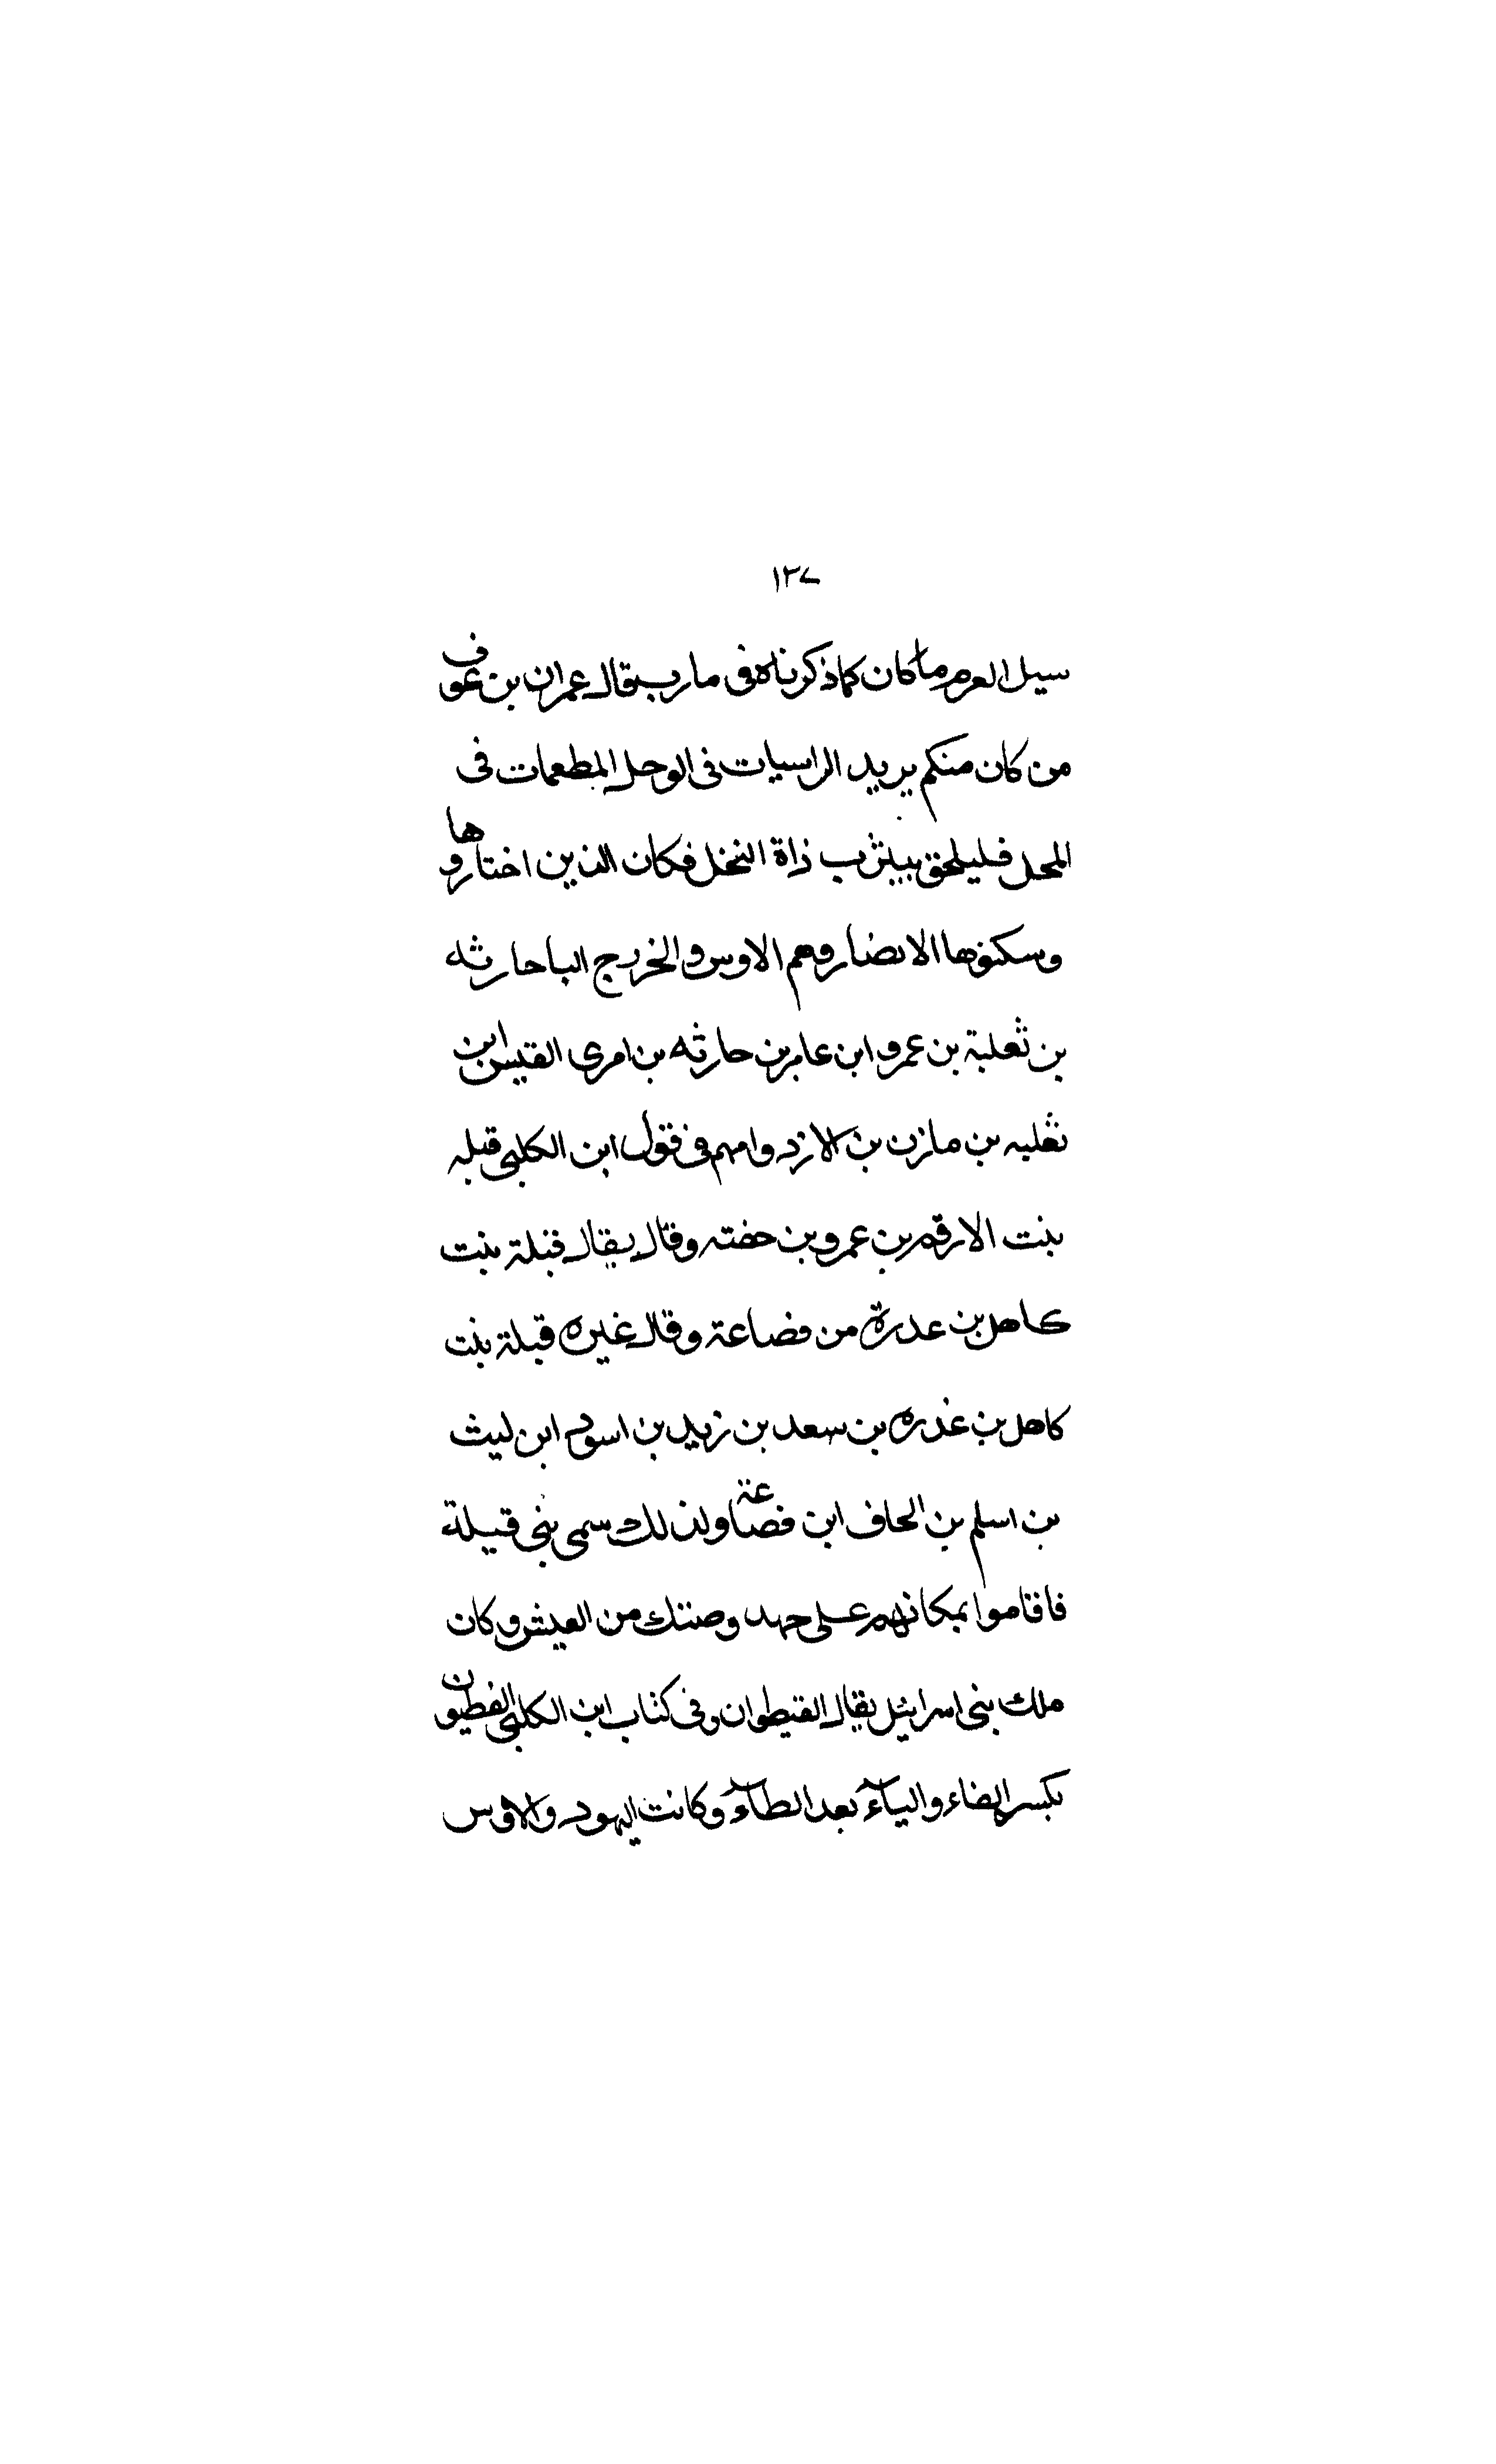 ١٣٧
سيل العرم ما كان كما ذكرناه فى مارب قال عمران بن عوف
من كان منكم يريد الراسيات فى الوحل المطعمات فى
المحل فليلحق بيثرب ذاة النخل فكان الذين اختاروها
وسكنوها الانصار وهم الاوس والخزرج ابنا حارثه
بن ثعلبة بن عمرو ابن عامر بن حارثه بن امرى القيس ابن
ثعلبه بن مازن بن الازد وامهم فى قول ابن الكلبى قيله
بنت الارقم بن عمرو بن جفنه وقال يقال قيلة بنت
كاهل بن عدرة من قضاعة وقال غيره قيلة بنت
كاهل بن عذره بن سعد بن زيد بن اسود ابن ليث
بن اسلم بن الحاف ابن قضاعة ولذلك سمى بنى قيلة
فاقاموا بمكانهم على جهد وضنك من العيش وكان
ملك بنى اسرائيل يقال الفيطوان وفى كتاب ابن الكلبى الفطيون
بكسر الفاء والياء بعد الطاء وكانت اليهود والاوس